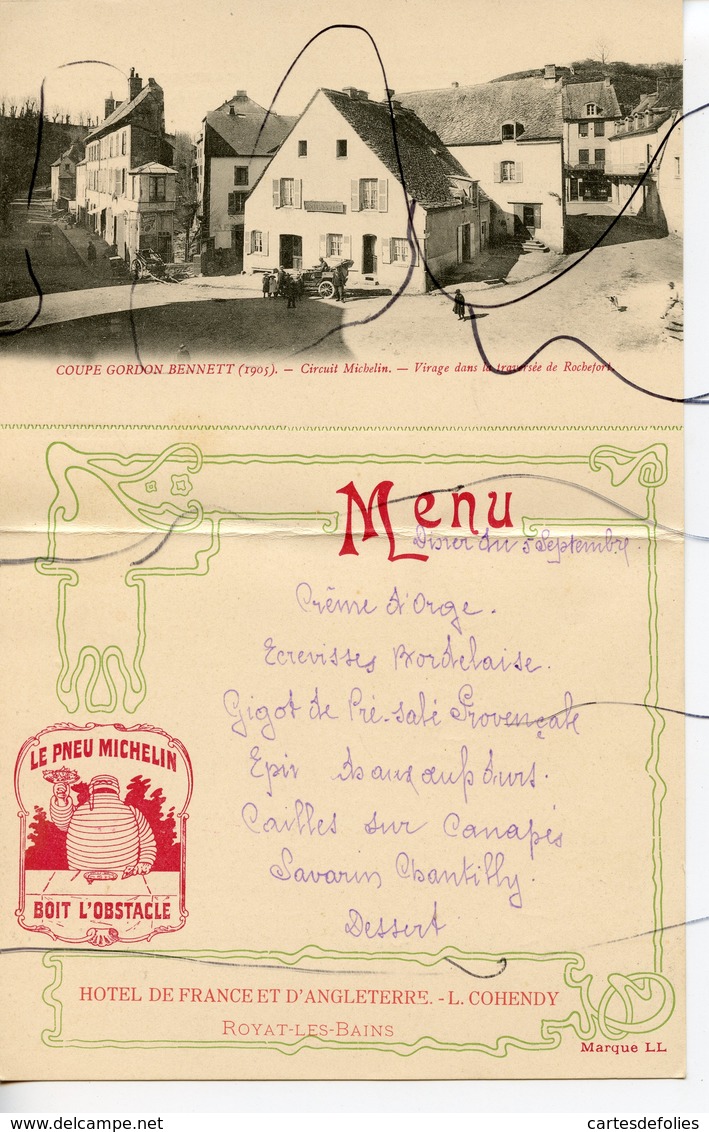 COUPE GORDON BENNETT (1905). — Circuit Michelin. — Virage dans la traversée de Rochefort.
Menu
Diner du 5 Septembre.
Crême d'Orge.
Ecrevisses Bordelaise.
Gigot de Pré-salé Provençale
LE PNEU MICHELIN
Epin aux œufs durs.
Cailles sur Canapés
Savarin Chantilly.
BOIT L'OBSTACLE
Dessert
HOTEL DE FRANCE ET D'ANGLETERRE. - L. COHENDY
ROYAT-LES-BAINS
Marque LL
Delcampe.net
cartesdefolies